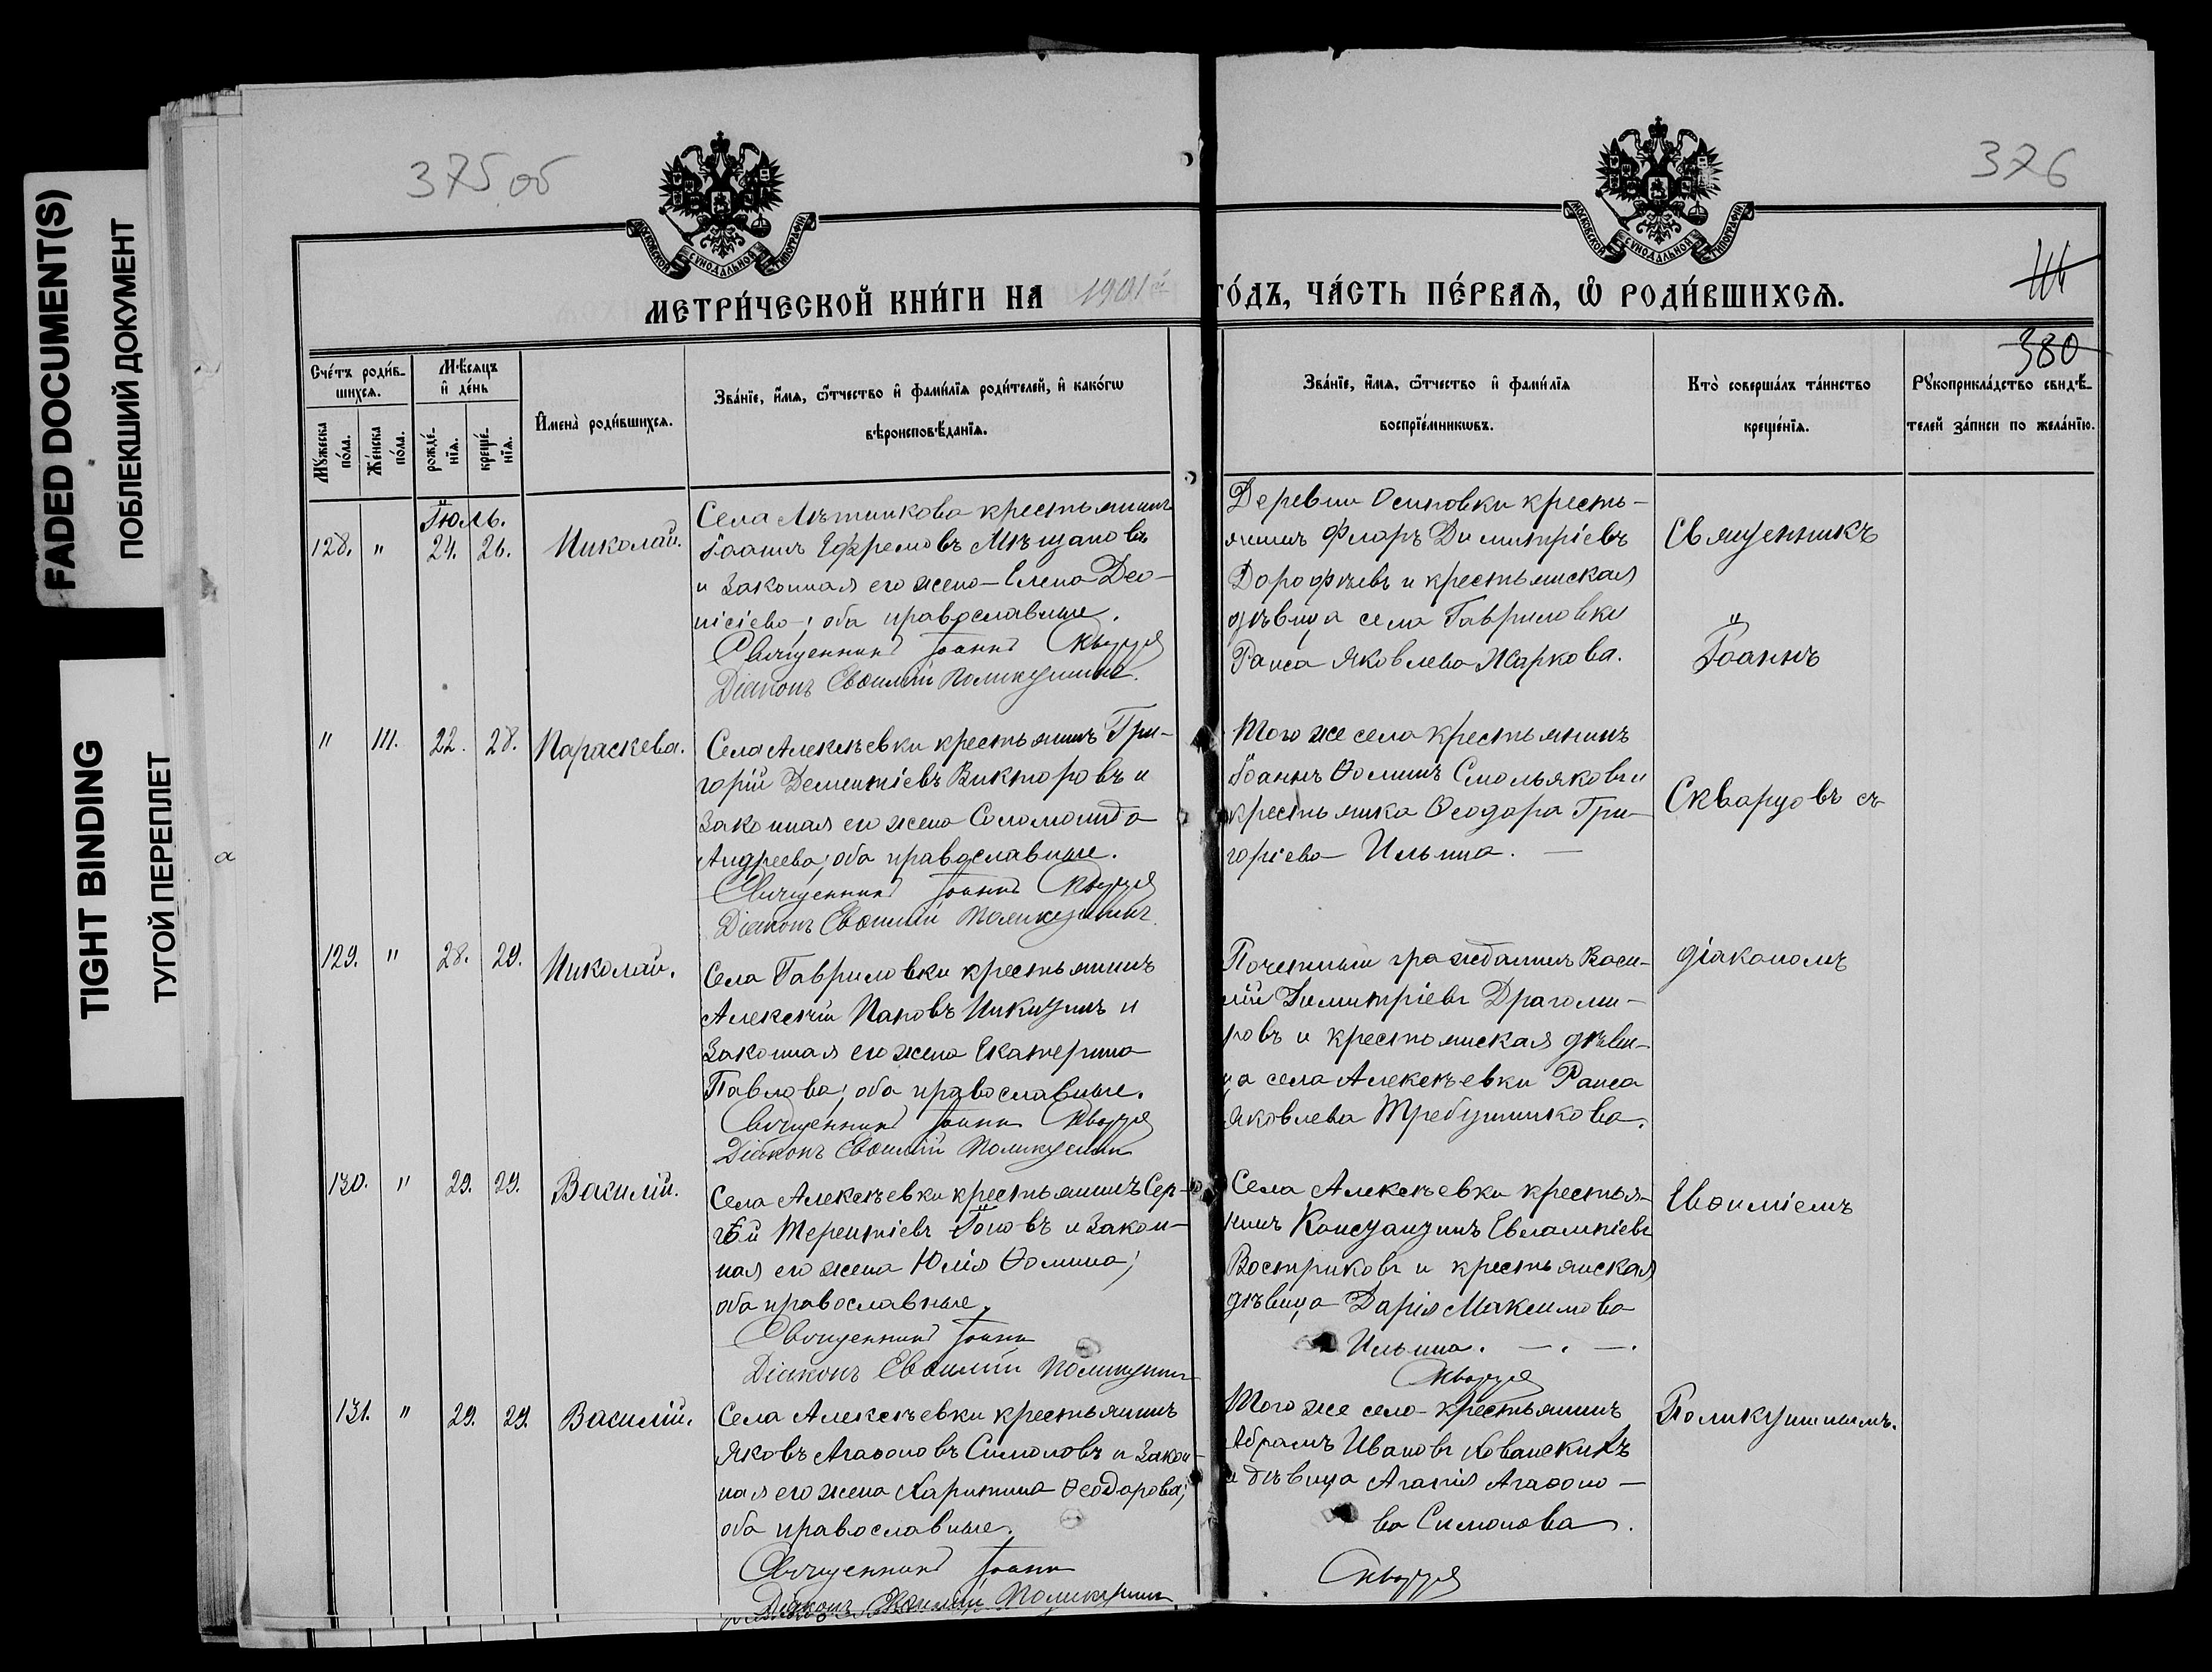 FADED DOCUMENT(S)
ПОБЛЕКШИЙ ДОКУМЕНТ
TIGHT BINDING
ТУГОЙ ПЕРЕПЛЕТ
375 об
376
МОСКОВСКОЙ СУНОДАЛЬНОЙ ТИПОГРАФІИ
МОСКОВСКОЙ СУНОДАЛЬНОЙ ТИПОГРАФІИ
МЕТРИ́ЧЕСКОЙ КНИ́ГИ НА 1901й
ГО́ДЪ, ЧА́СТЬ ПЕ́РВАѦ, Ѡ҆ РОДИ́ВШИХСѦ.
380
Сче́тъ роди́в-
шихсѧ.
Мꙋ́жеска по́ла.
Же́нска по́ла.
Мѣ́сѧцъ
и҆ де́нь
рожде́-
нїѧ.
креще́-
нїѧ.
И҆мена̀ роди́вшихсѧ.
Зва́нїе, и҆́мѧ, ѿ́чество и҆ фами́лїѧ роди́телей, и҆ како́гѡ
вѣроисповѣ́данїѧ.
Зва́нїе, и҆́мѧ, ѿ́чество и҆ фами́лїѧ
воспрїе́мникѡвъ.
Кто̀ соверша́лъ та́инство
креще́нїѧ.
Рꙋкоприкла́дство свидѣ́-
телей за́писи по жела́нїю.
Іюль.
128. " 24. 26. Николай.
Села Лѣтникова крестьянинъ
Іоаннъ Ефремовъ Мѣщановъ
и законная его жена Елена Део-
нісіева; оба православные.
Священникъ Іоаннъ Скварцов
Діаконъ Евѳимій Поликушинъ.
Деревни Осиповки кресть-
янинъ Флоръ Димитріевъ
Дорофѣевъ и крестьянская
дѣвица села Гавриловки
Раиса Яковлева Жаркова.
Священникъ
Іоаннъ
" 111. 22. 28. Параскева.
Села Алексѣевки крестьянинъ Гри-
горій Дементіевъ Викторовъ и
законная его жена Соломонида
Андреева; оба православные.
Священникъ Іоаннъ Скварцов
Діаконъ Евѳимій Поликушинъ.
Того же села крестьянинъ
Іоаннъ Ѳоминъ Смольяковъ и
крестьянка Ѳеодора Гри-
горіева Ильина. —
Скварцовъ съ
129. " 28. 29. Николай.
Села Гавриловки крестьянинъ
Алексѣй Никицинъ и
законная его жена Екатерина
Павлова; оба православные.
Священникъ Іоаннъ Скварцов
Діаконъ Евѳимій Поликушинъ
Почетный гражданинъ Васи-
лій Димитріевъ Драгоми-
ровъ и крестьянская дѣви-
ца села Алексѣевки Раиса
Яковлева Требушникова.
діакономъ
130. " 29. 29. Василій.
Села Алексѣевки крестьянинъ Сер-
гѣй Терентіевъ и закон-
ная его жена Юлія Ѳомина;
оба православные.
Священникъ Іоаннъ
Діаконъ Евѳимій Поликушинъ
Села Алексѣевки крестья-
нинъ Евлампіевъ
Востриковъ и крестьянская
дѣвица Дарія Максимова
Ильина. — . — .
Скварцов
Евѳиміемъ
131. " 29. 29. Василій.
Села Алексѣевки крестьянинъ
Яковъ Агаѳоновъ Симоновъ и закон-
ная его жена Харитина Ѳеодорова;
оба православные.
Священникъ Іоаннъ
Діаконъ Евѳимій Поликушинъ
Того же села крестьянинъ
Абрамъ Ивановъ Хованскихъ
и дѣвица Агапія Агаѳоно-
ва Симонова.
Скварцов
Поликушинымъ.